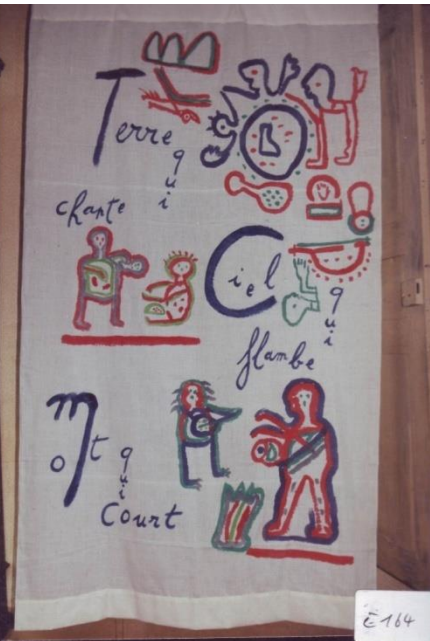 Terre
qui
chante
Ciel
qui
flambe
mot
qui
court
E 164